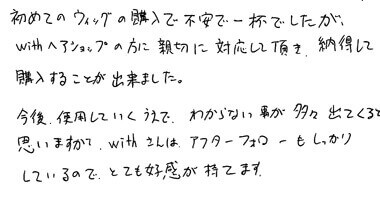 初めてのウィッグの購入で不安で一杯でしたが、
withヘアショップの方に親切に対応して頂き、納得して
購入することが出来ました。
今後、使用していくうえで、わからない事が多々出てくると
思いますが、withさんは、アフターフォローもしっかり
しているので、とても好感が持てます。